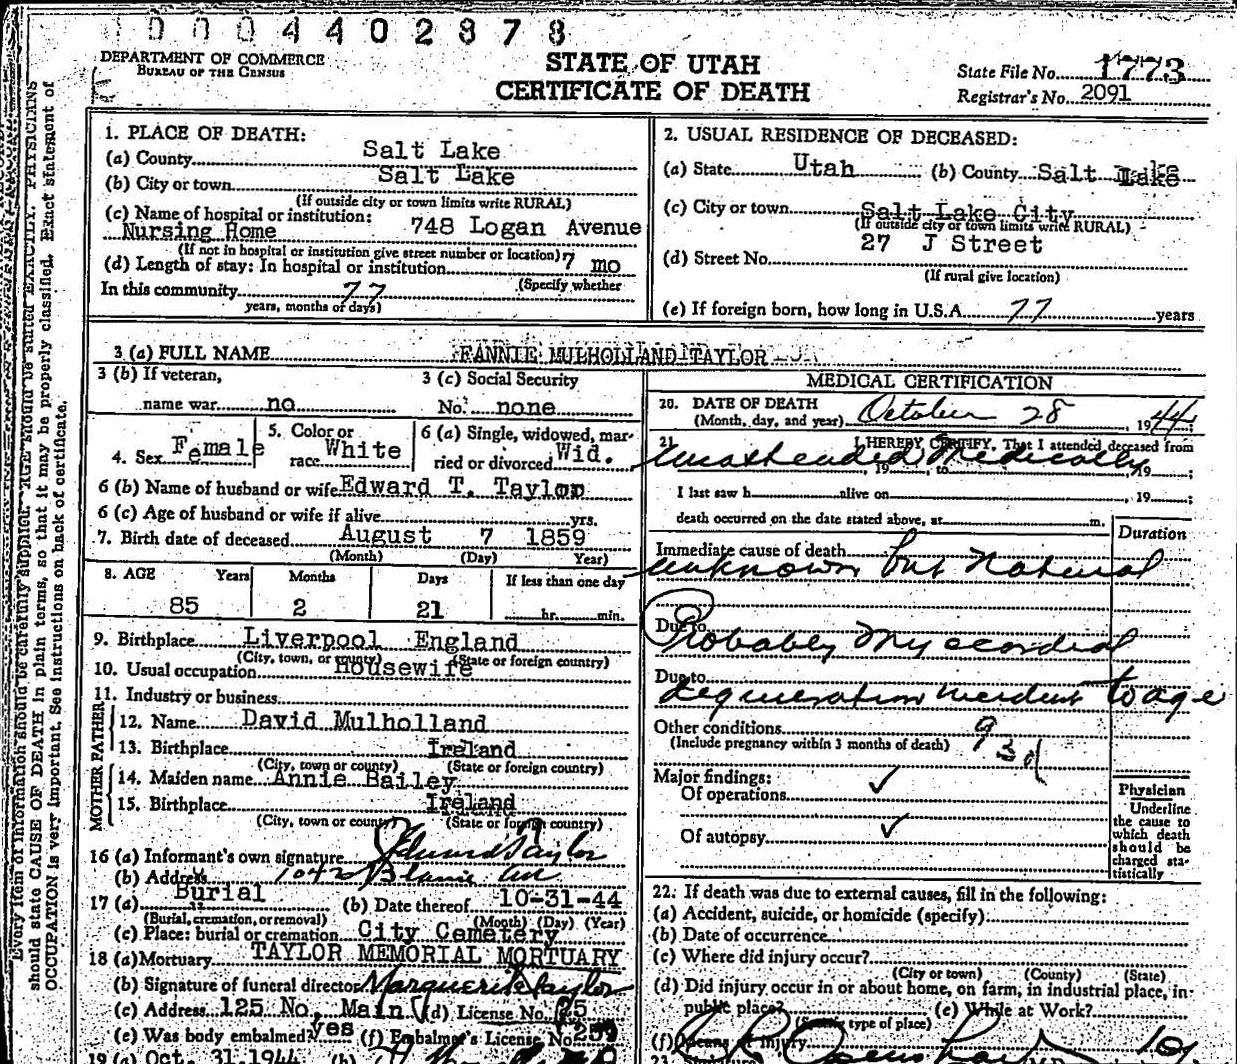 0004402878
DEPARTMENT OF COMMERCE
BUREAU OF THE CENSUS
STATE OF UTAH
CERTIFICATE OF DEATH
State File No. 1773
Registrar's No. 2091
Every item of information should be carefully supplied. AGE should be stated EXACTLY. PHYSICIANS
should state CAUSE OF DEATH in plain terms, so that it may be properly classified. Exact statement of
OCCUPATION is very important. See instructions on back of certificate.
1. PLACE OF DEATH:
(a) County Salt Lake
(b) City or town Salt Lake
(If outside city or town limits write RURAL)
(c) Name of hospital or institution:
Nursing Home 748 Logan Avenue
(If not in hospital or institution give street number or location)
(d) Length of stay: In hospital or institution 7 mo
(Specify whether
In this community 77
years, months or days)
2. USUAL RESIDENCE OF DECEASED:
(a) State Utah (b) County Salt Lake
(c) City or town Salt Lake City
(If outside city or town limits write RURAL)
(d) Street No. 27 J Street
(If rural give location)
(e) If foreign born, how long in U.S.A. 77 years
3 (a) FULL NAME FANNIE MULHOLLAND TAYLOR
3 (b) If veteran,
name war no
3 (c) Social Security
No. none
4. Sex Female
5. Color or
race White
6 (a) Single, widowed, mar-
ried or divorced Wid.
6 (b) Name of husband or wife Edward T. Taylor
6 (c) Age of husband or wife if alive yrs.
7. Birth date of deceased August 7 1859
(Month) (Day) Year)
8. AGE Years Months Days If less than one day
85 2 21 hr. min.
9. Birthplace Liverpool England
(City, town, or county) (State or foreign country)
10. Usual occupation Housewife
11. Industry or business
FATHER
12. Name David Mulholland
13. Birthplace Ireland
(City, town or county) (State or foreign country)
MOTHER
14. Maiden name Annie Bailey
15. Birthplace Ireland
(City, town or county) (State or foreign country)
16 (a) Informant's own signature Edward Taylor
(b) Address
17 (a) Burial (b) Date thereof 10-31-44
(Burial, cremation, or removal) (Month) (Day) (Year)
(c) Place: burial or cremation City Cemetery
18 (a) Mortuary TAYLOR MEMORIAL MORTUARY
(b) Signature of funeral director Marguerite Taylor
(c) Address 125 No. Main (d) License No.
(e) Was body embalmed? yes (f) Embalmer's License No. 259
19 (a) Oct. 31 1944 (b)
MEDICAL CERTIFICATION
20. DATE OF DEATH
(Month, day, and year) October 28, 1944;
21. I HEREBY CERTIFY, That I attended deceased from
Unattended Medically
19 , to , 19 ;
I last saw h alive on , 19 ;
death occurred on the date stated above, at m.
Duration
Immediate cause of death
unknown but Natural
Due to
Probably Myocardial
Due to
degeneration incident to age
Other conditions 93d
(Include pregnancy within 3 months of death)
Major findings:
Of operations ✓
Of autopsy ✓
Physician
Underline
the cause to
which death
should be
charged sta-
tistically
22. If death was due to external causes, fill in the following:
(a) Accident, suicide, or homicide (specify)
(b) Date of occurrence
(c) Where did injury occur?
(City or town) (County) (State)
(d) Did injury occur in or about home, on farm, in industrial place, in
public place? (e) While at Work?
(Specify type of place)
(f) Means of Injury